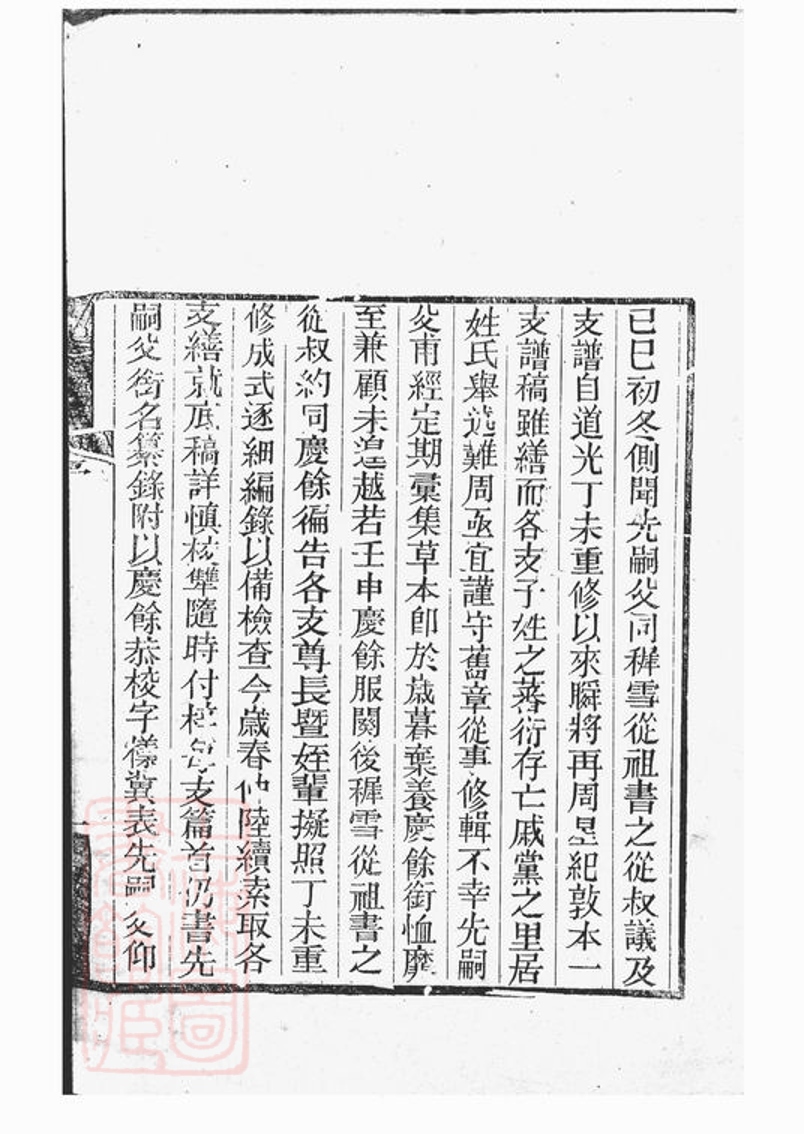 己巳初冬側聞先嗣父同穉雪從祖書之從叔議及
支譜自道光丁未重修以來瞬將再周星紀敦本一
支譜稿雖繕而各支子姓之蕃衍存亡戚黨之里居
姓氏舉遠難周亟宜謹守舊章從事修輯不幸先嗣
父甫經定期彙集草本卽於歲暮棄養慶餘銜恤靡
至兼顧未遑越若壬申慶餘服闋後穉雪從祖書之
從叔約同慶餘徧告各支尊長曁姪輩擬照丁未重
修成式逐細編錄以備檢查今歲春仲陸續索取各
支繕就底稿詳愼校讐隨時付梓每支篇首仍書先
嗣父銜名纂錄附以慶餘恭校字樣冀表先嗣父仰